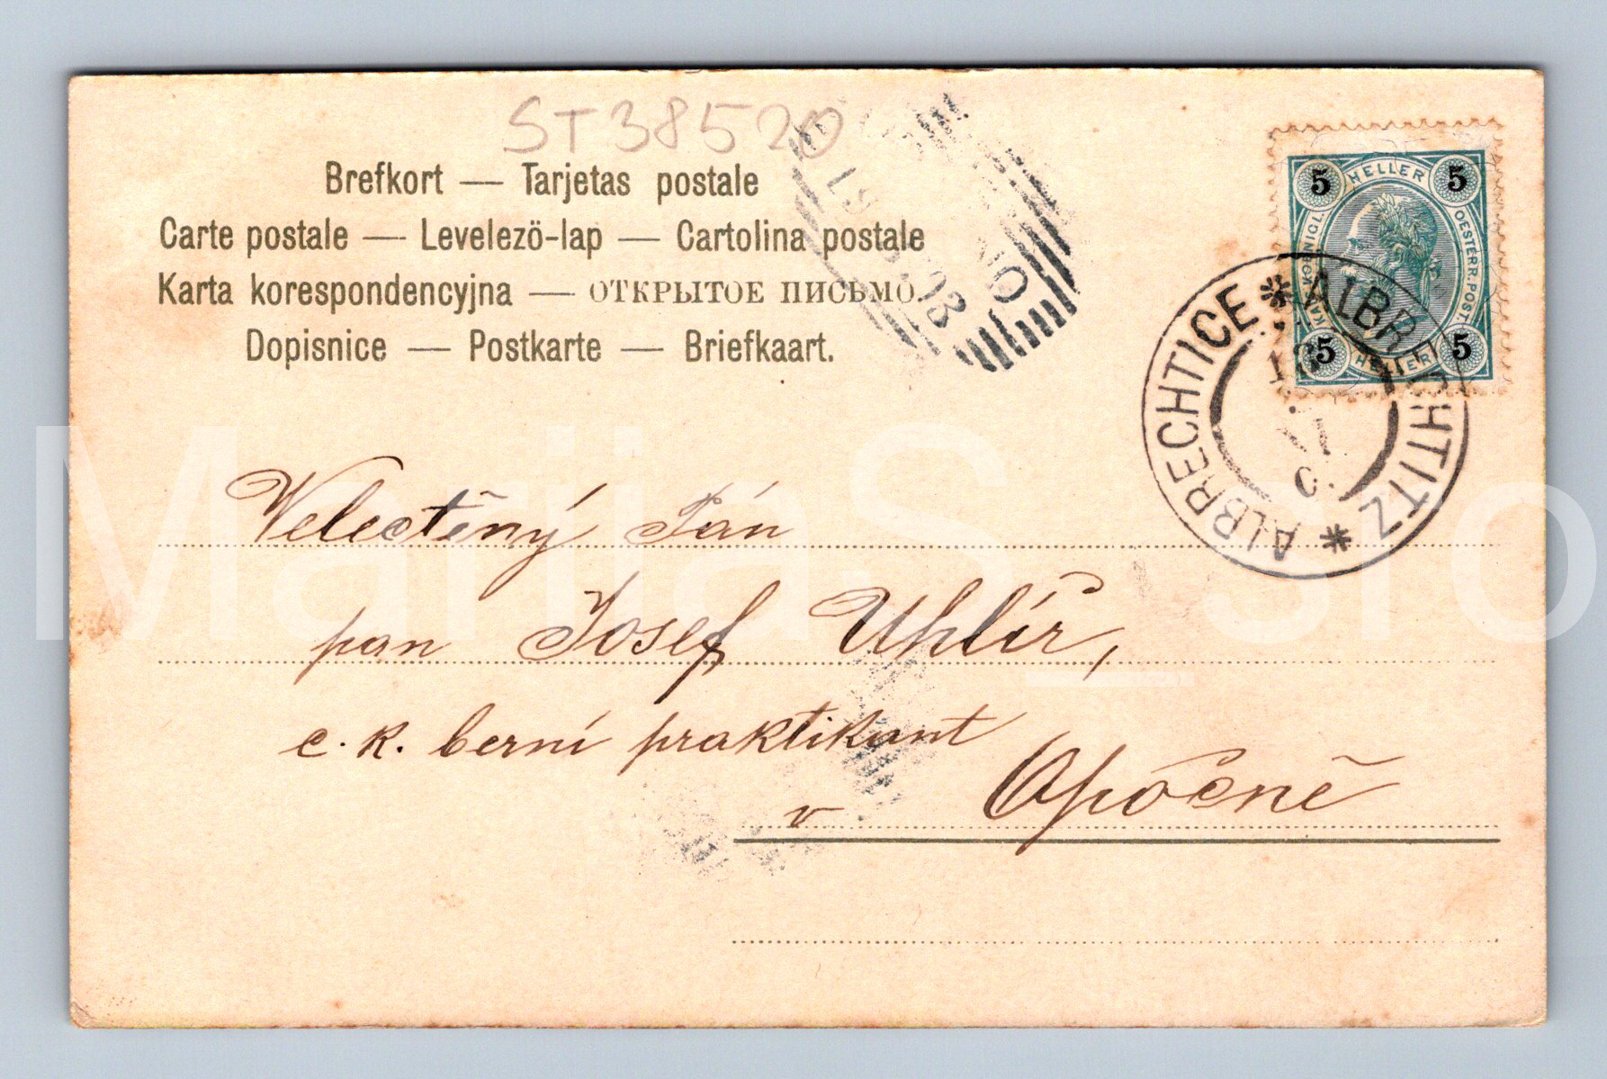 ST38520
Brefkort — Tarjetas postale
Carte postale — Levelezö-lap — Cartolina postale
Karta korespondencyjna — ОТКРЫТОЕ ПИСЬМО.
Dopisnice — Postkarte — Briefkaart.
5 HELLER 5
KAIS. KÖNIGL. OESTERR. POST.
5 HELLER 5
ALBRECHTICE * ALBRECHTITZ *
VI
Velectěný Pán
pan Josef Uhlíř,
c. k. berní praktikant
v Opočně